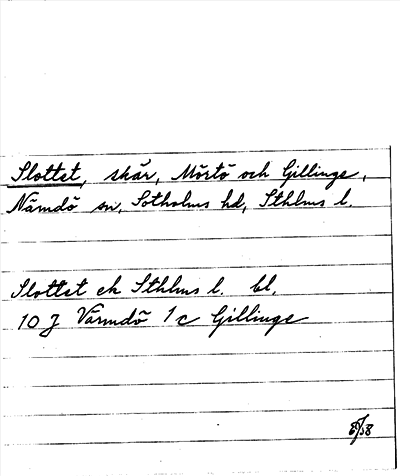 Slottet, skär, Mörtö och Gillinge,
Nämdö sn, Sotholms hd, Sthlms l.
Slottet ek Sthlms l. bl.
10 J Värmdö 1 c Gillinge